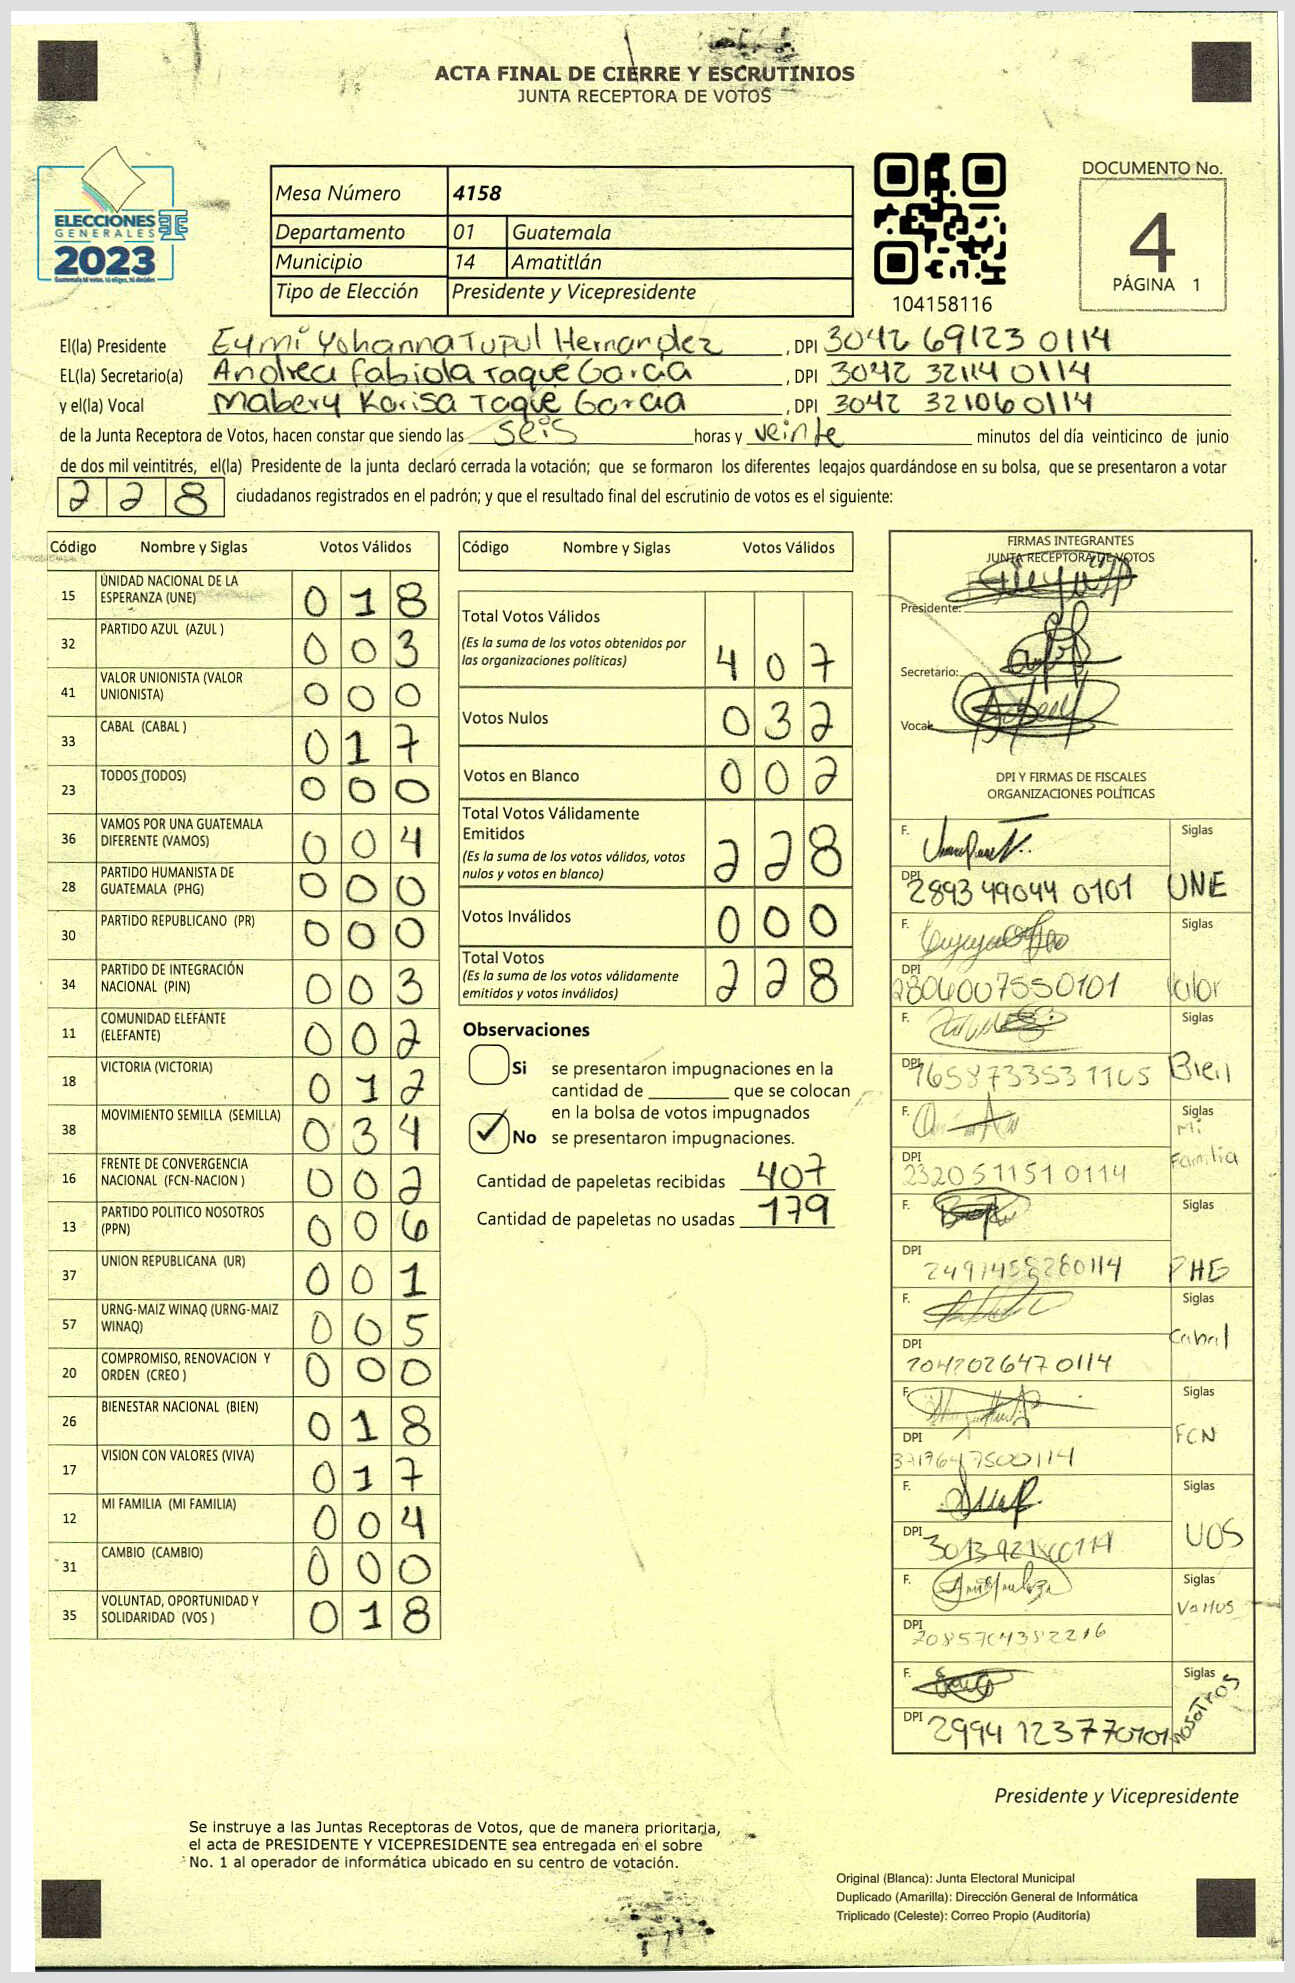 ACTA FINAL DE CIERRE Y ESCRUTINIOS
JUNTA RECEPTORA DE VOTOS
ELECCIONES
GENERALES
2023
Mesa Número 4158
Departamento 01 Guatemala
Municipio 14 Amatitlán
Tipo de Elección Presidente y Vicepresidente
104158116
DOCUMENTO No.
4
PÁGINA 1
El(la) Presidente Eymi Yohanna Tupul Hernandez, DPI 3042 69123 0114
EL(la) Secretario(a) Andrea Fabiola Taque Garcia, DPI 3042 32114 0114
y el(la) Vocal Mabery Karisa Taque Garcia, DPI 3042 32106 0114
de la Junta Receptora de Votos, hacen constar que siendo las seis horas y veinte minutos del día veinticinco de junio
de dos mil veintitrés, el(la) Presidente de la junta declaró cerrada la votación; que se formaron los diferentes legajos guardándose en su bolsa, que se presentaron a votar
228 ciudadanos registrados en el padrón; y que el resultado final del escrutinio de votos es el siguiente:
Código Nombre y Siglas Votos Válidos
15 UNIDAD NACIONAL DE LA ESPERANZA (UNE) 018
32 PARTIDO AZUL (AZUL ) 003
41 VALOR UNIONISTA (VALOR UNIONISTA) 000
33 CABAL (CABAL ) 017
23 TODOS (TODOS) 000
36 VAMOS POR UNA GUATEMALA DIFERENTE (VAMOS) 004
28 PARTIDO HUMANISTA DE GUATEMALA (PHG) 000
30 PARTIDO REPUBLICANO (PR) 000
34 PARTIDO DE INTEGRACIÓN NACIONAL (PIN) 003
11 COMUNIDAD ELEFANTE (ELEFANTE) 002
18 VICTORIA (VICTORIA) 012
38 MOVIMIENTO SEMILLA (SEMILLA) 034
16 FRENTE DE CONVERGENCIA NACIONAL (FCN-NACION ) 002
13 PARTIDO POLITICO NOSOTROS (PPN) 006
37 UNION REPUBLICANA (UR) 001
57 URNG-MAIZ WINAQ (URNG-MAIZ WINAQ) 005
20 COMPROMISO, RENOVACION Y ORDEN (CREO ) 000
26 BIENESTAR NACIONAL (BIEN) 018
17 VISION CON VALORES (VIVA) 017
12 MI FAMILIA (MI FAMILIA) 004
31 CAMBIO (CAMBIO) 000
35 VOLUNTAD, OPORTUNIDAD Y SOLIDARIDAD (VOS ) 018
Código Nombre y Siglas Votos Válidos
Total Votos Válidos
(Es la suma de los votos obtenidos por
las organizaciones políticas) 407
Votos Nulos 032
Votos en Blanco 002
Total Votos Válidamente
Emitidos
(Es la suma de los votos válidos, votos
nulos y votos en blanco) 228
Votos Inválidos 000
Total Votos
(Es la suma de los votos válidamente
emitidos y votos inválidos) 228
Observaciones
Si se presentaron impugnaciones en la
cantidad de ________ que se colocan
en la bolsa de votos impugnados
No se presentaron impugnaciones.
Cantidad de papeletas recibidas 407
Cantidad de papeletas no usadas 179
FIRMAS INTEGRANTES
JUNTA RECEPTORA DE VOTOS
Presidente:
Secretario:
Vocal:
DPI Y FIRMAS DE FISCALES
ORGANIZACIONES POLÍTICAS
F. Siglas
DPI 2893 49044 0101 UNE
F. Siglas
DPI 2806007550101 Valor
F. Siglas
DPI Bien
F. Siglas
DPI 2320511510114 Mi Familia
F. Siglas
DPI PHG
F. Siglas
DPI Cabal
F. Siglas
DPI FCN
F. Siglas
DPI VOS
F. Siglas
DPI Vamos
F. Siglas
DPI 2994 12377 0101 nosotros
Presidente y Vicepresidente
Se instruye a las Juntas Receptoras de Votos, que de manera prioritaria,
el acta de PRESIDENTE Y VICEPRESIDENTE sea entregada en el sobre
No. 1 al operador de informática ubicado en su centro de votación.
Original (Blanca): Junta Electoral Municipal
Duplicado (Amarilla): Dirección General de Informática
Triplicado (Celeste): Correo Propio (Auditoría)